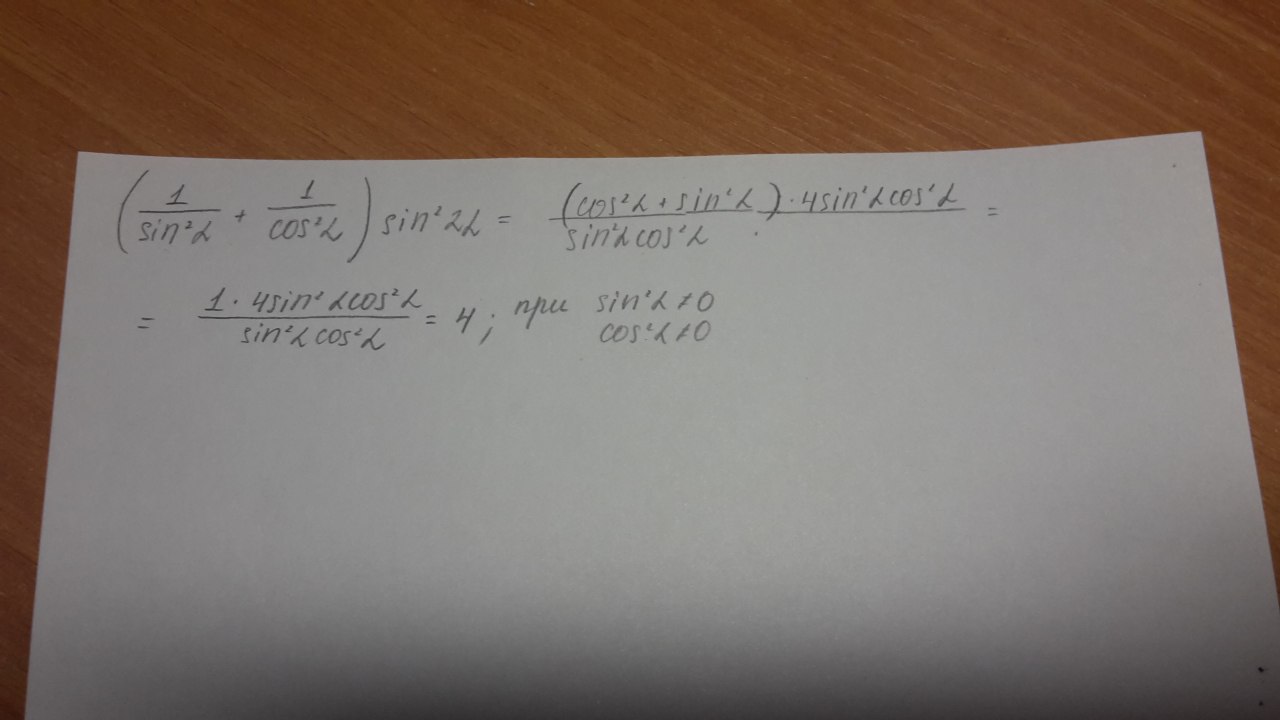 (1/sin²α + 1/cos²α) sin²2α = (cos²α + sin²α) · 4sin²αcos²α / sin²αcos²α =
= 1 · 4sin²αcos²α / sin²αcos²α = 4; при sin²α ≠ 0
cos²α ≠ 0